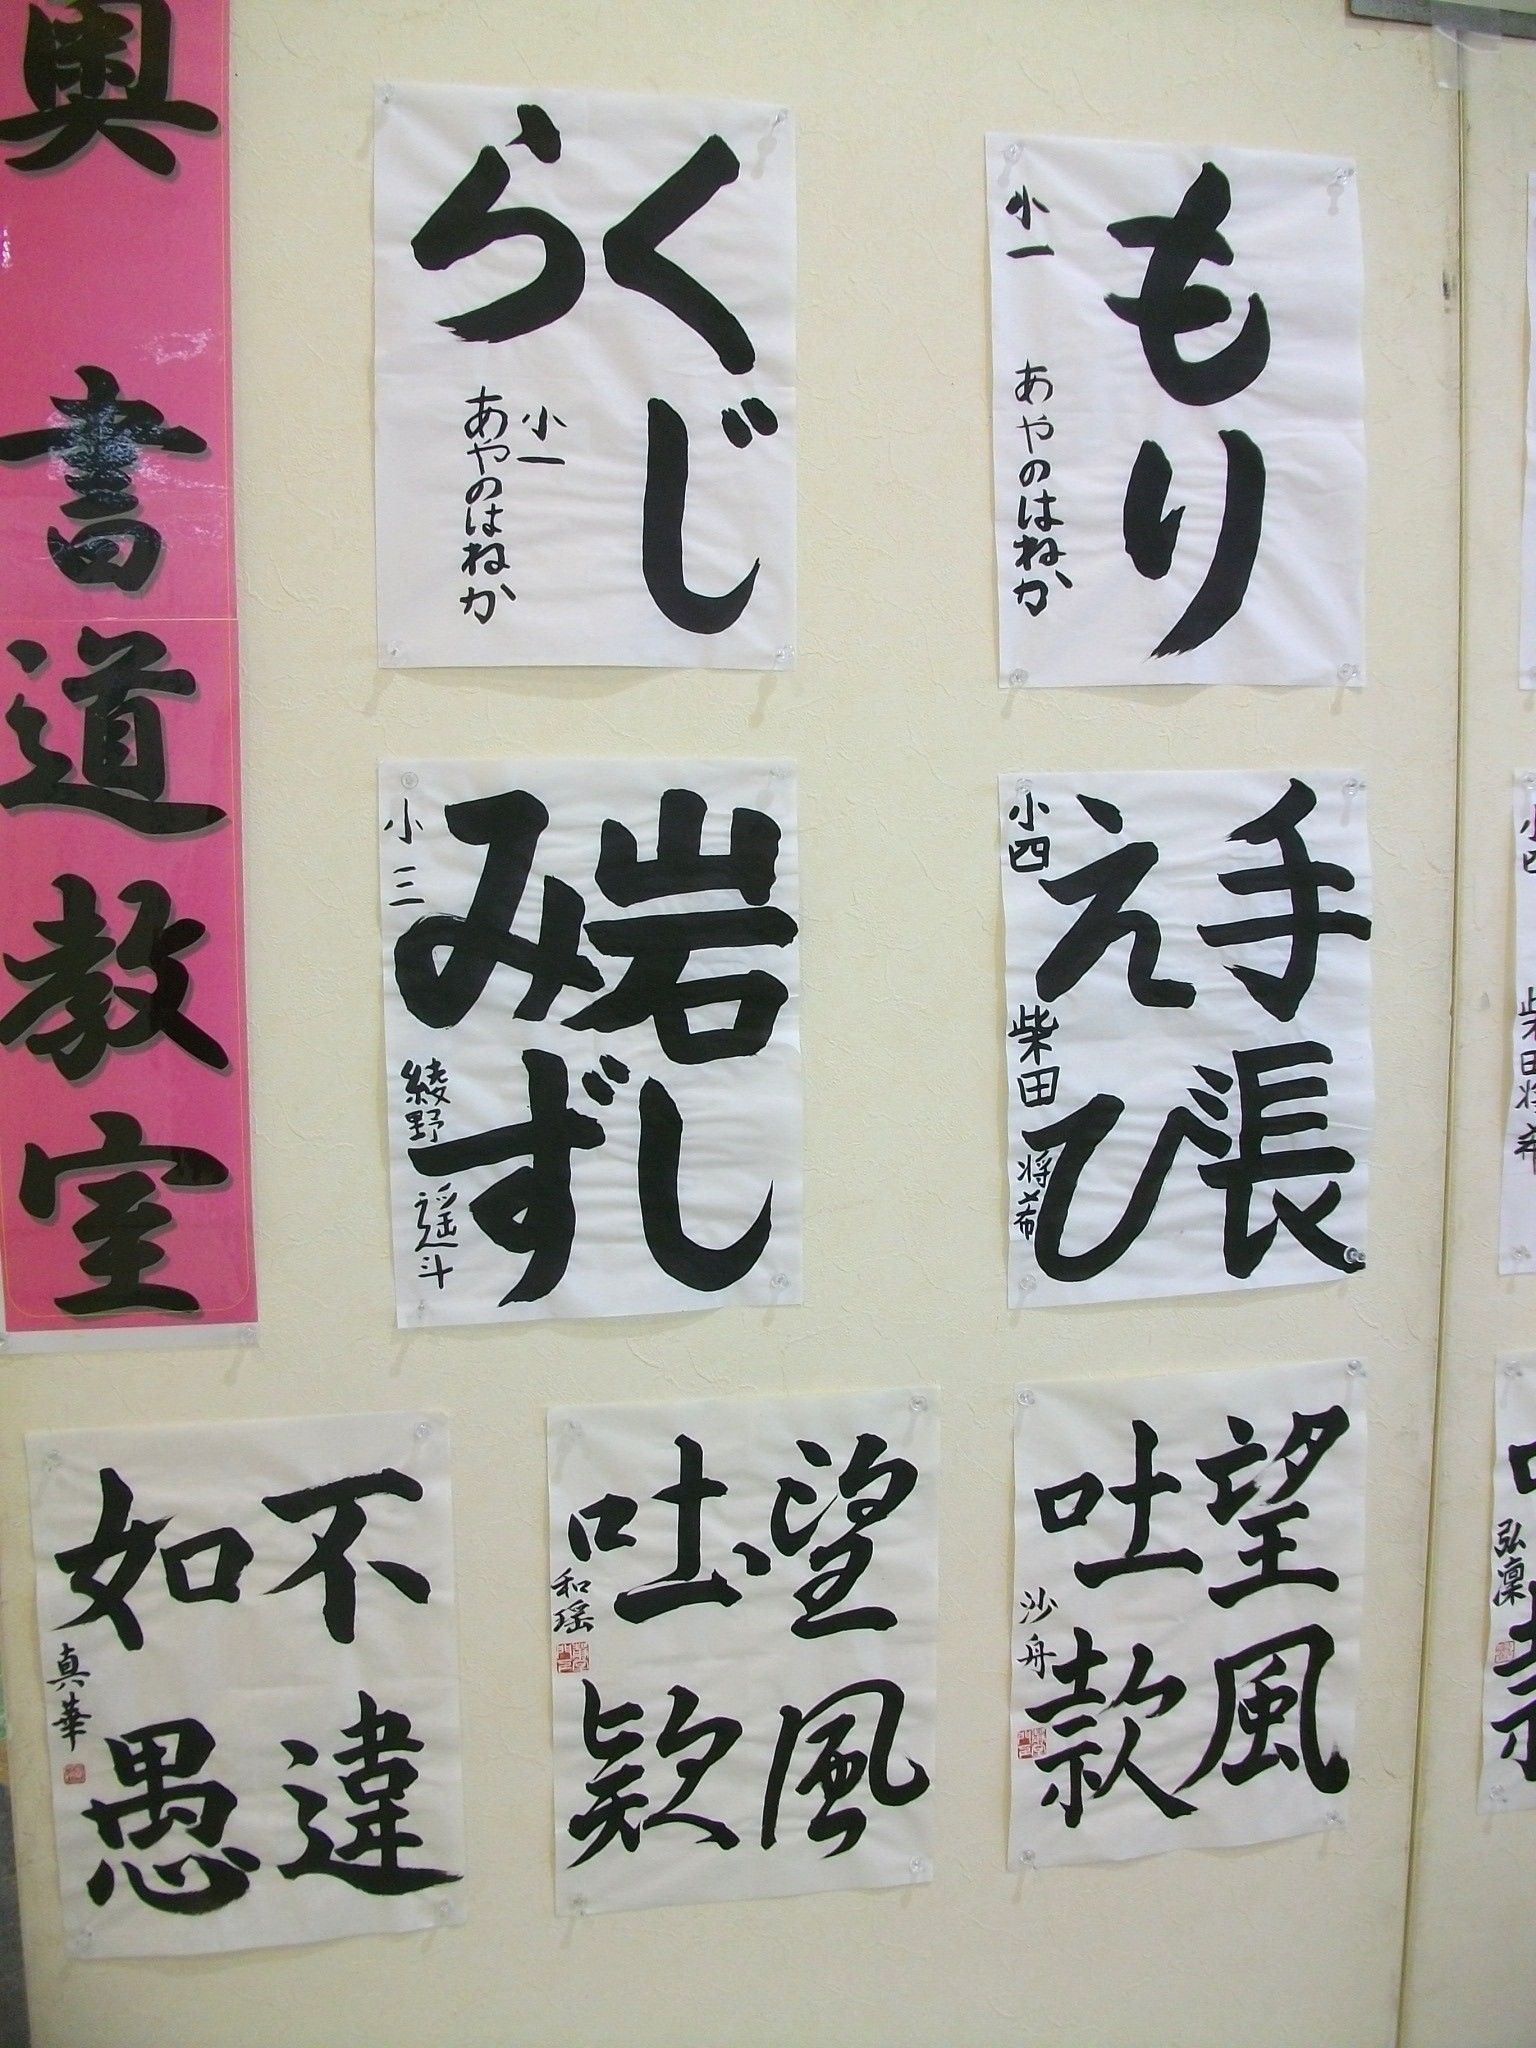 奥 書道教室
もり
小一 あやのはねか
くじ
ら
小一
あやのはねか
手張
えび
小四 柴田将希
岩し
みず
小三 綾野遥斗
望風
吐款
沙舟
望風
吐款
和瑶
不違
如愚
真華
弘凜